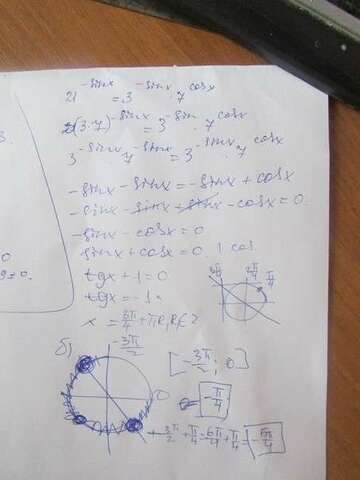 21^-sinx = 3^-sinx · 7^cosx
(3·7)^-sinx = 3^-sin · 7^cosx
3^-sinx 7^-sinx = 3^-sinx · 7^cosx
-sinx - sinx = -sinx + cosx
-sinx - sinx + sinx - cosx = 0
-sinx - cosx = 0
sinx + cosx = 0 | cos
tgx + 1 = 0
tgx = -1
x = 3π/4 + πR, R∈Z
б) -3π/2
[-3π/2; 0]
-π/4
-3π/2 + π/4 = -6π/4 + π/4 = -5π/4